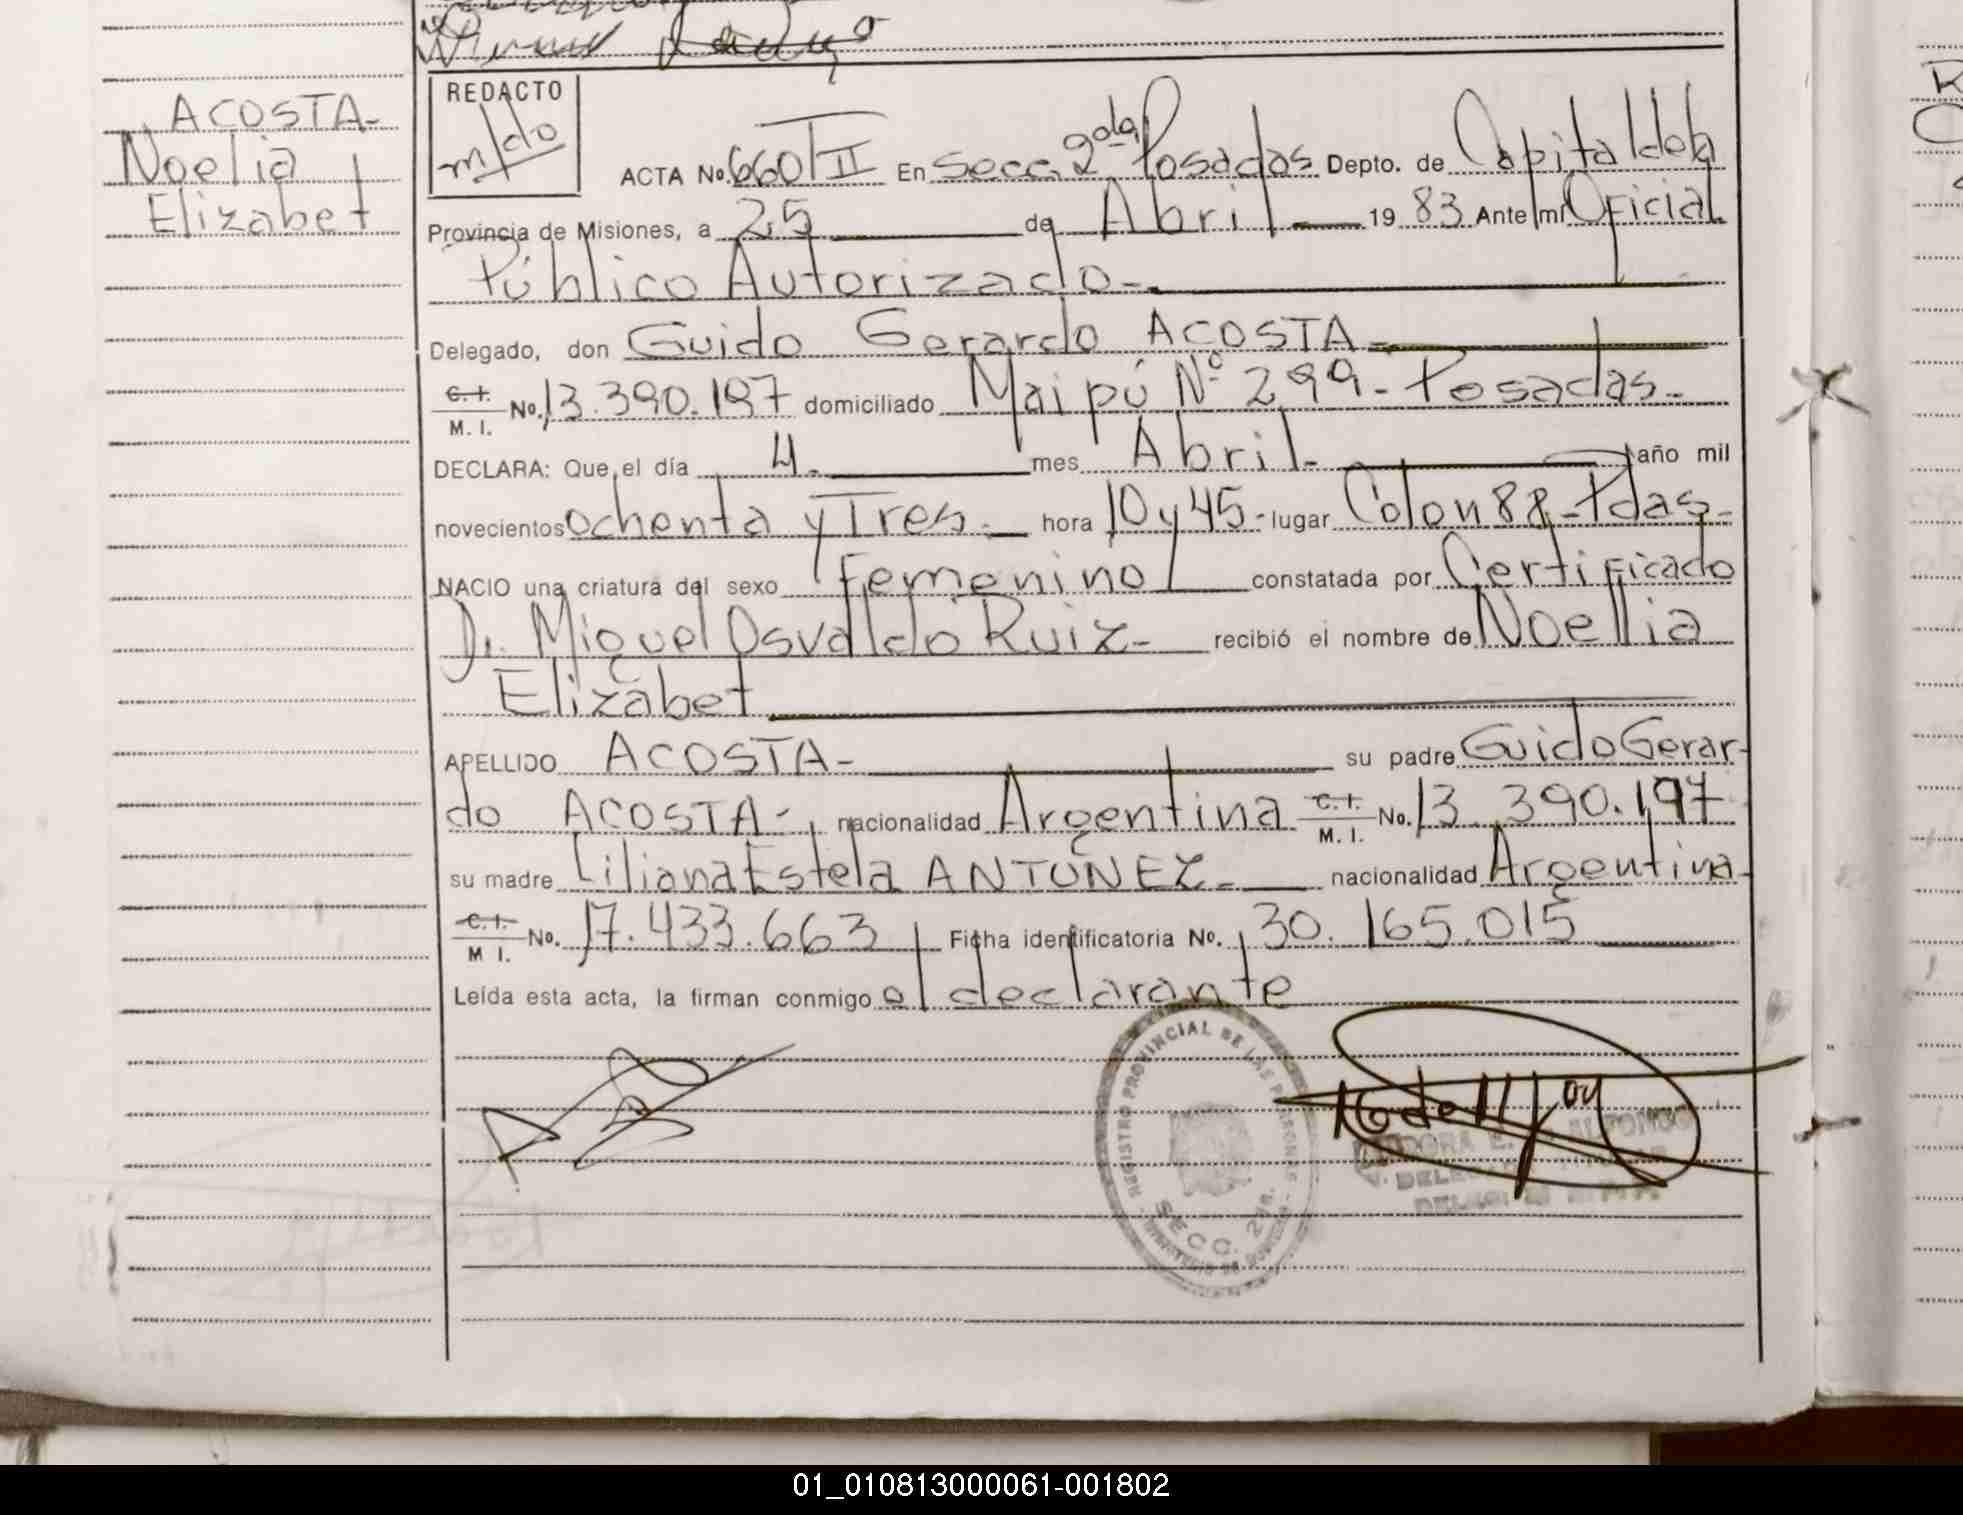 REDACTO
m/do
ACOSTA-
Noelia
Elizabet
ACTA No. 660/II En Secc. 2da Posadas Depto. de Capital de la
Provincia de Misiones, a 25 de Abril 19 83 Ante mí Oficial
Público Autorizado-
Delegado, don Guido Gerardo ACOSTA-
C.I. / M. I. No. 13.390.197 domiciliado Maipú Nº 299- Posadas-
DECLARA: Que el día 4- mes Abril- año mil
novecientos ochenta y Tres- hora 10 y 45- lugar Colon 88- Pdas-
NACIO una criatura del sexo femenino constatada por Certificado
Dr. Miguel Osvaldo Ruiz- recibió el nombre de Noelia
Elizabet
APELLIDO ACOSTA- su padre Guido Gerar-
do ACOSTA-, nacionalidad Argentina C.I. / M. I. No. 13.390.197
su madre Liliana Estela ANTUNEZ- nacionalidad Argentina-
C.I. / M I. No. 17.433.663 Ficha identificatoria No. 30.165.015
Leída esta acta, la firman conmigo el declarante
REGISTRO PROVINCIAL DE LAS PERSONAS
SECC. 2da.
01_010813000061-001802